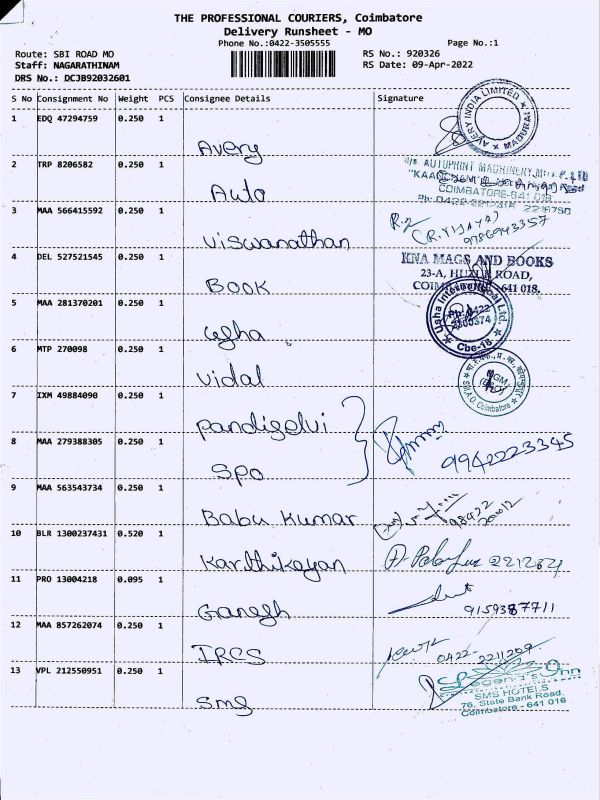 THE PROFESSIONAL COURIERS, Coimbatore
Delivery Runsheet - MO
Phone No.:0422-3505555
Page No.:1
Route: SBI ROAD MO
RS No.: 920326
Staff: NAGARATHINAM
RS Date: 09-Apr-2022
DRS No.: DCJB92032601
S No Consignment No Weight PCS Consignee Details Signature
1 EDQ 47294759 0.250 1
Avery
AVERY INDIA LIMITED MADURAI
2 TRP 8206582 0.250 1
Auto
AUTOPRINT MACHINERY
COIMBATORE-641 018
3 MAA 566415592 0.250 1
Viswanathan
(R.VIJAYA)
4 DEL 527521545 0.250 1
BOOK
KNA MAGS AND BOOKS
23-A, ROAD,
641 018.
5 MAA 281370201 0.250 1
Usha
Usha International Ltd
Cbe-18
6 MTP 270098 0.250 1
Vidal
Coimbatore
7 IXM 49884090 0.250 1
Pandiselvi
8 MAA 279388305 0.250 1
SPO
9942223345
9 MAA 563543734 0.250 1
Babu Kumar
98422
20012
10 BLR 1300237431 0.520 1
Karthikayan
11 PRO 13004218 0.095 1
Ganesh
9159387711
12 MAA 857262074 0.250 1
IRCS
0422 2211209
13 VPL 212550951 0.250 1
SMS
Legend's Inn
SMS HOTELS
76, State Bank Road,
Coimbatore - 641 018